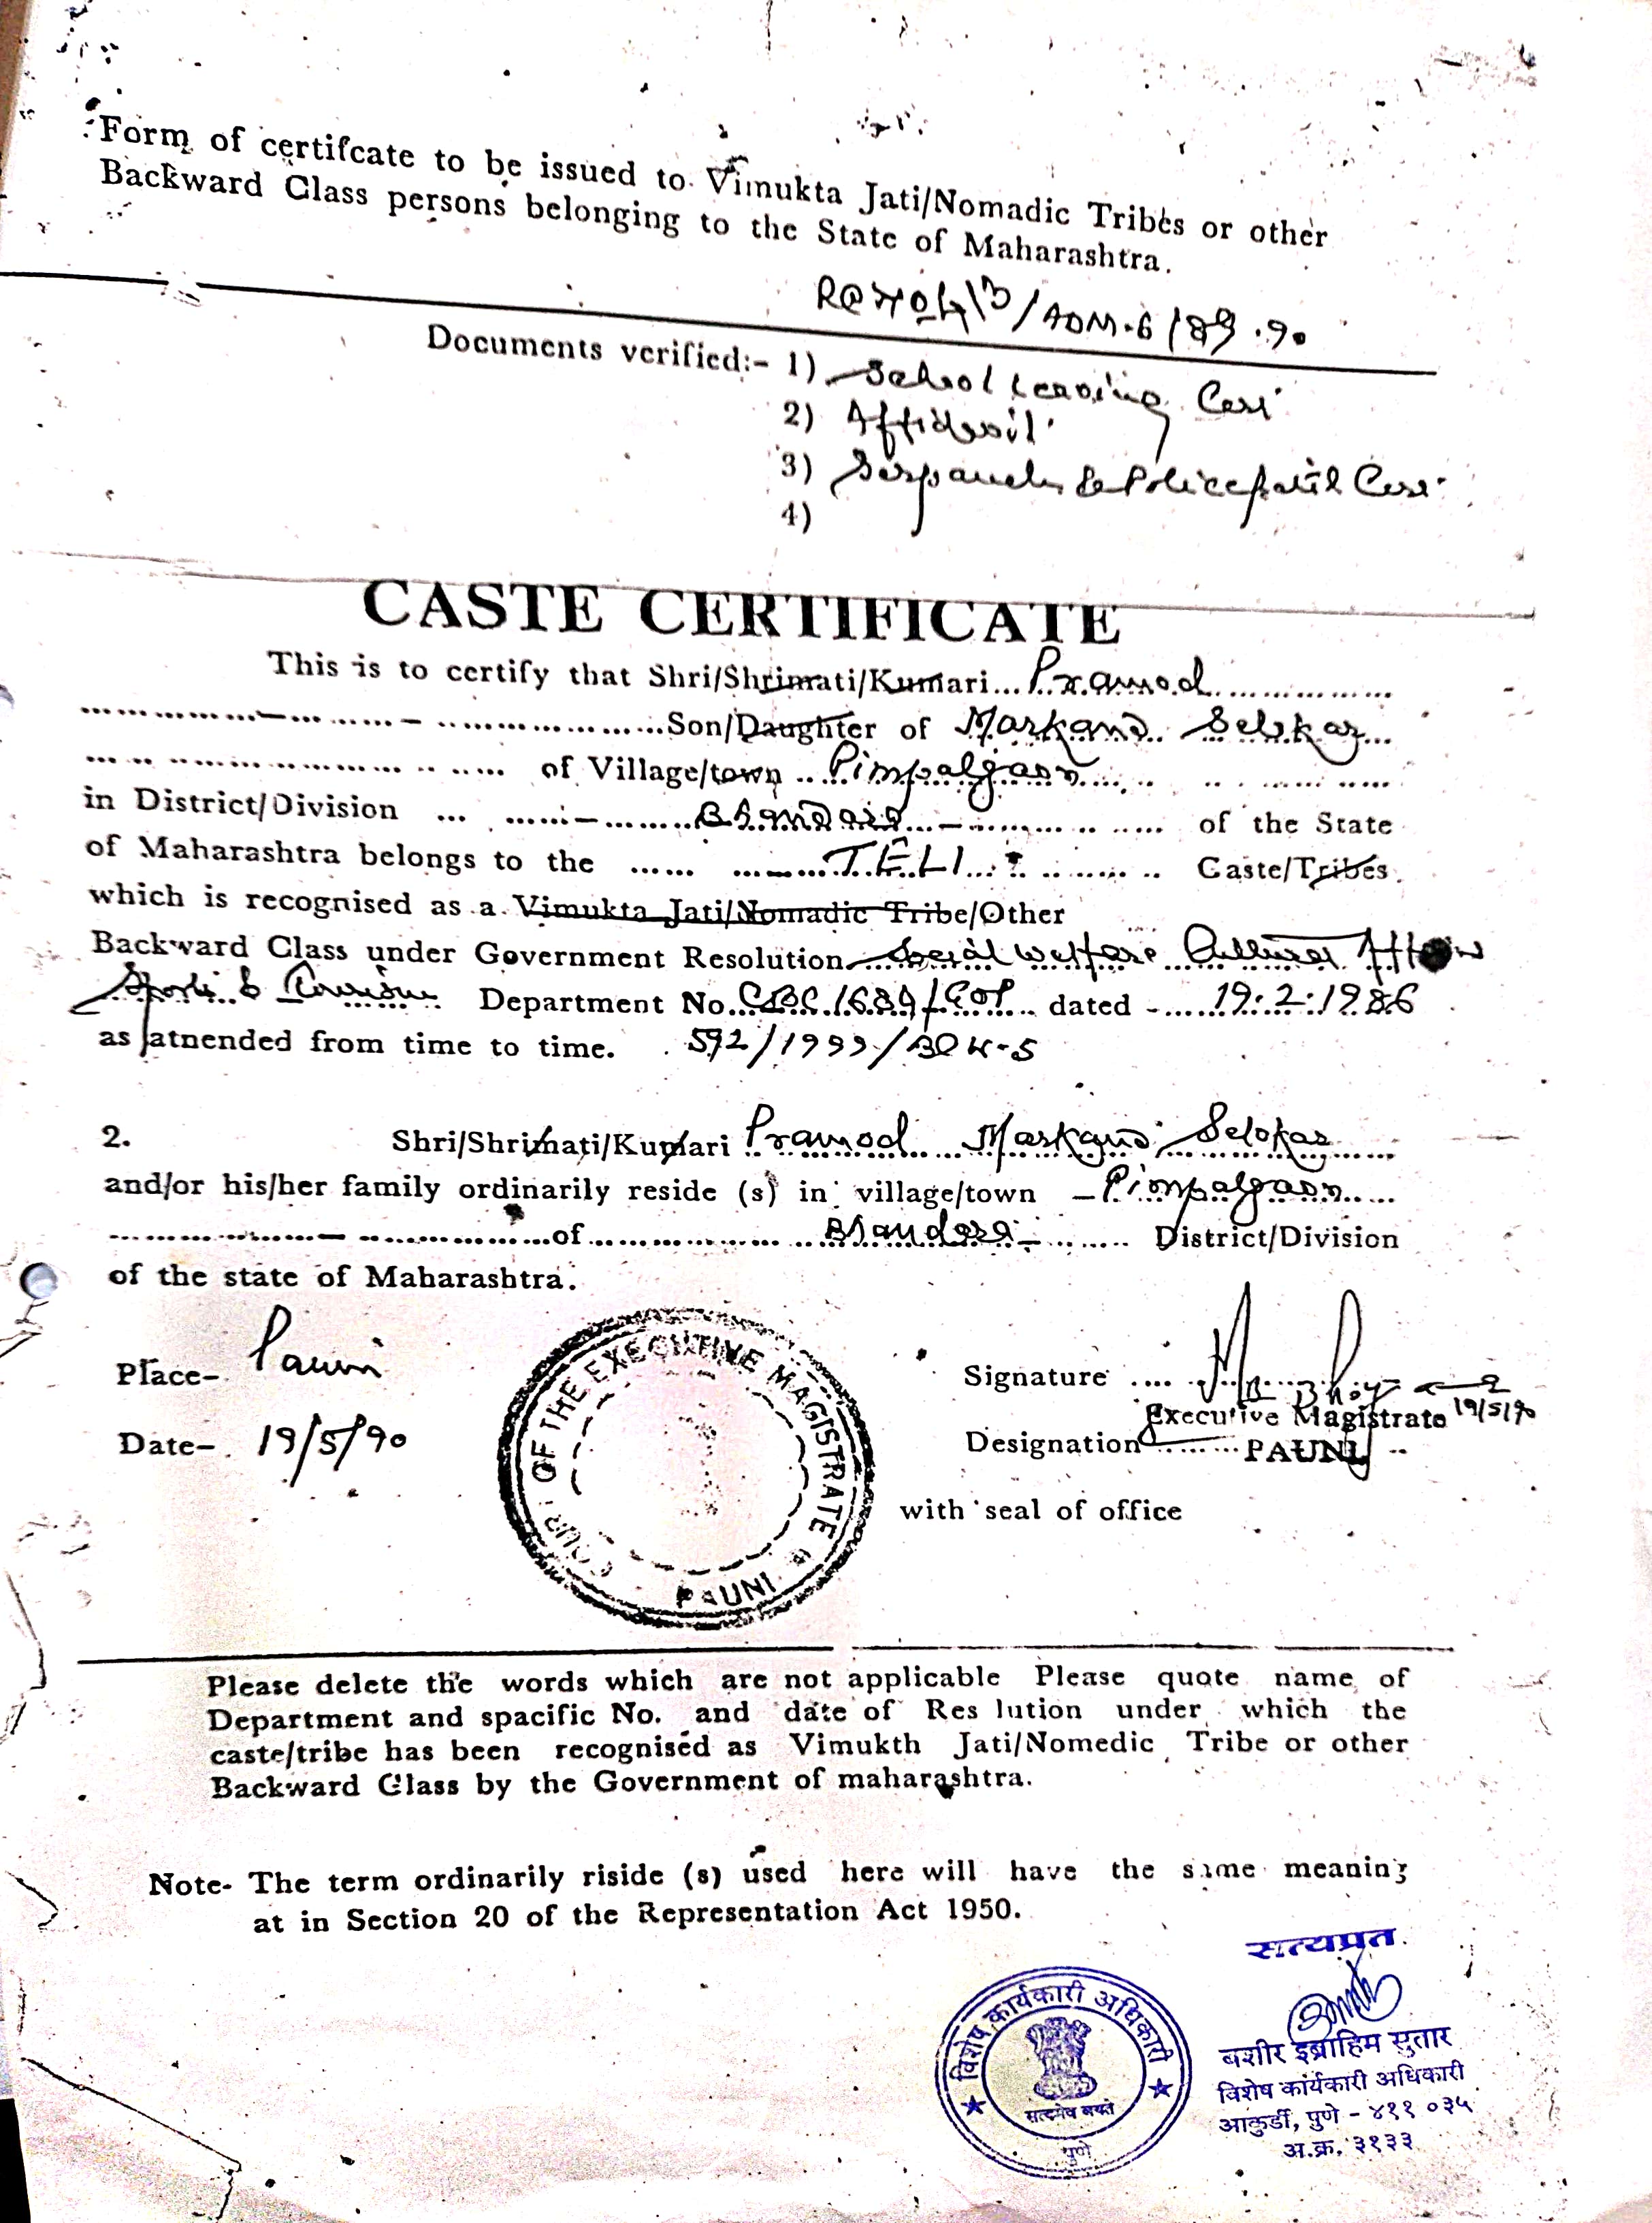 Form of certifcate to be issued to Vimukta Jati/Nomadic Tribes or other
Backward Class persons belonging to the State of Maharashtra.
/ADM-6/89-90
Documents verified:- 1) School Leaving Cert
2) Affidavit
3) Sarpanch & Policepatil Cert
4)
CASTE CERTIFICATE
This is to certify that Shri/Shrimati/Kumari... Pramod
Son/Daughter of Markand Selokar
of Village/town Pimpalgaon
in District/Division Bhandara of the State
of Maharashtra belongs to the TELI Caste/Tribes
which is recognised as a Vimukta Jati/Nomadic Tribe/Other
Backward Class under Government Resolution Social Welfare Cultural Affairs
Sports & Tourism Department No. CBC/1684/ dated - 19.2.1986
as atnended from time to time.
2. Shri/Shrimati/Kumari Pramod Markand Selokar
and/or his/her family ordinarily reside (s) in village/town - Pimpalgaon
of Bhandara District/Division
of the state of Maharashtra.
Place- Pauni
Date- 19/5/90
COURT OF THE EXECUTIVE MAGISTRATE
PAUNI
Signature
19/5/90
Executive Magistrate
Designation PAUNI
with seal of office
Please delete the words which are not applicable Please quote name of
Department and spacific No. and date of Res lution under which the
caste/tribe has been recognised as Vimukth Jati/Nomedic Tribe or other
Backward Class by the Government of maharashtra.
Note- The term ordinarily riside (s) used here will have the same meaning
at in Section 20 of the Representation Act 1950.
सत्यप्रत
विशेष कार्यकारी अधिकारी
सत्यमेव जयते
पुणे
बशीर इब्राहिम सुतार
विशेष कार्यकारी अधिकारी
आकुर्डी, पुणे - ४११ ०३५
अ.क्र. ३१३३